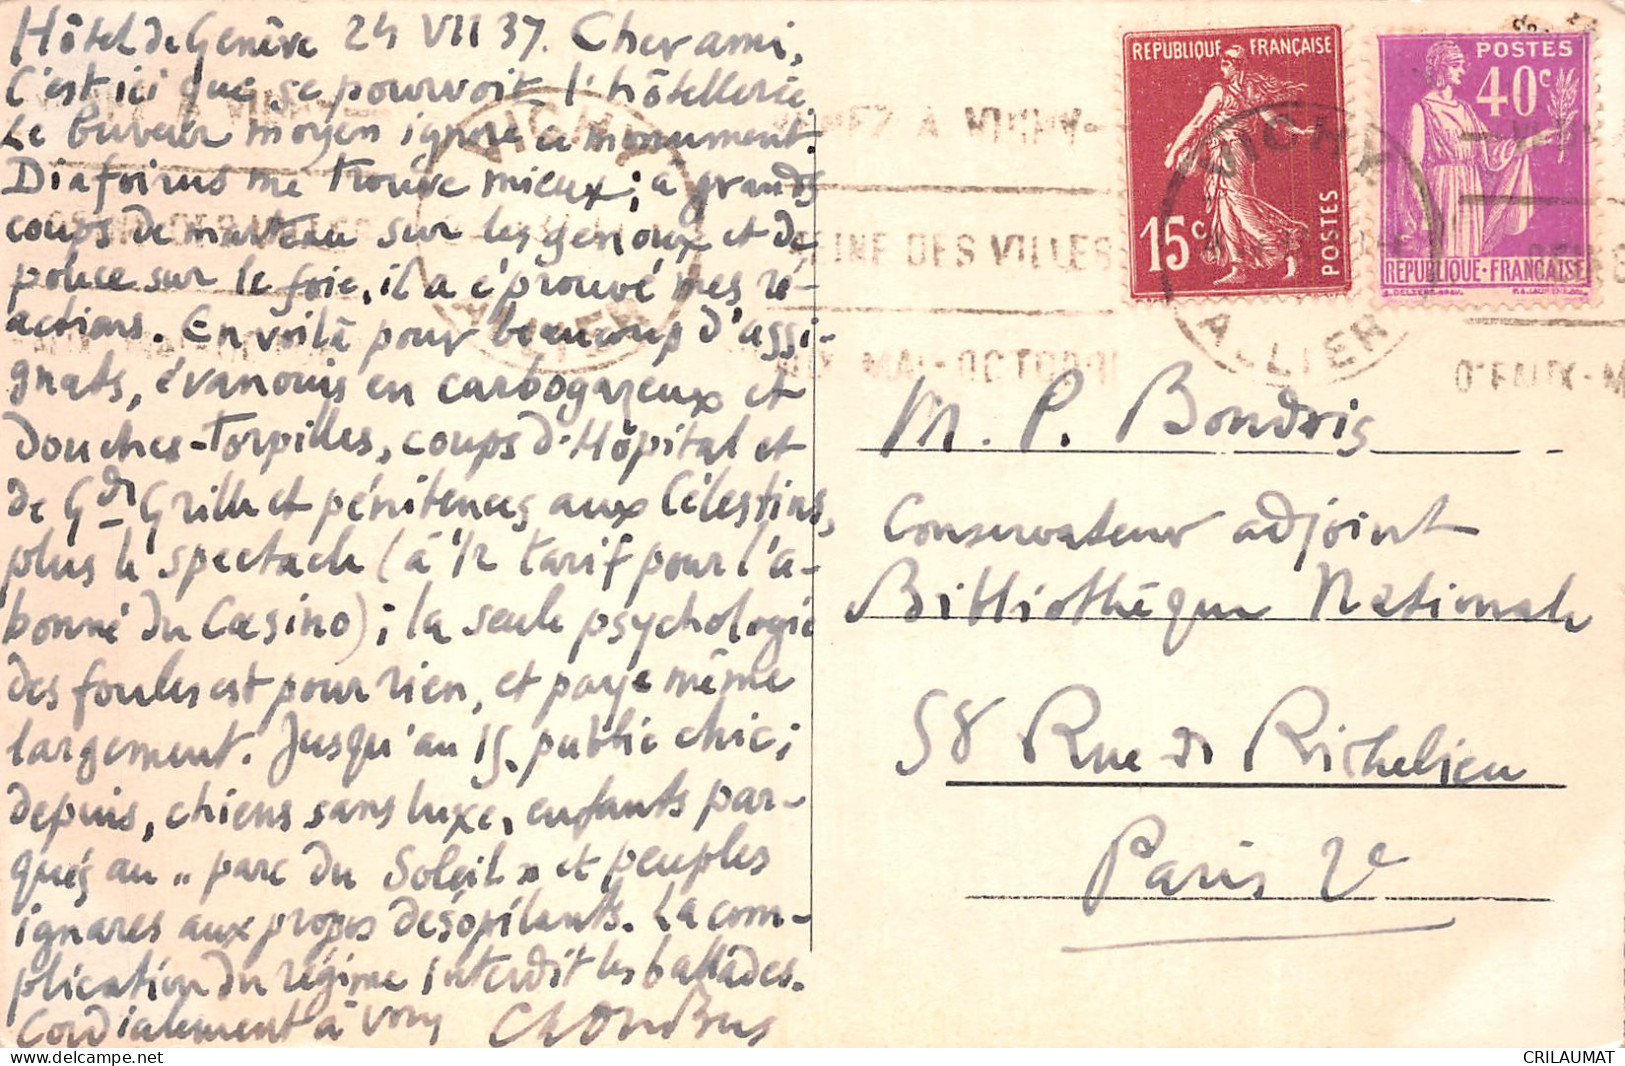 Hôtel de Genève 24 VII 37. Cher ami,
C'est ici que se pourvoit l'hôtellerie.
Le buveur moyen ignore ce monument.
Diafoirus me trouve mieux; à grands
coups de marteau sur les genoux et de
pouce sur le foie, il a éprouvé mes ré-
actions. En voilà pour beaucoup d'assi-
gnats, évanouis en carbogazeux et
douches-torpilles, coups d'Hôpital et
de Gde Grille et pénitences aux Célestins,
plus le spectacle (à 1/2 tarif pour l'a-
bonné du Casino); la seule psychologie
des foules est pour rien, et paye même
largement. Jusqu'au 15, public chic;
depuis, chiens sans luxe, enfants par-
qués au „parc du Soleil" et peuples
ignares aux propos désopilants. La com-
plication du régime interdit les ballades.
Cordialement à vous
REPUBLIQUE FRANÇAISE
15c
POSTES
POSTES
40c
REPUBLIQUE-FRANÇAISE
VICHY
ALLIER
VICHY
ALLIER
A VICHY
REINE DES VILLES
D'EAUX MAI-OCTOBRE
M. P. Bondois
Conservateur adjoint
Bibliothèque Nationale
58 Rue de Richelieu
Paris 2e
CRILAUMAT